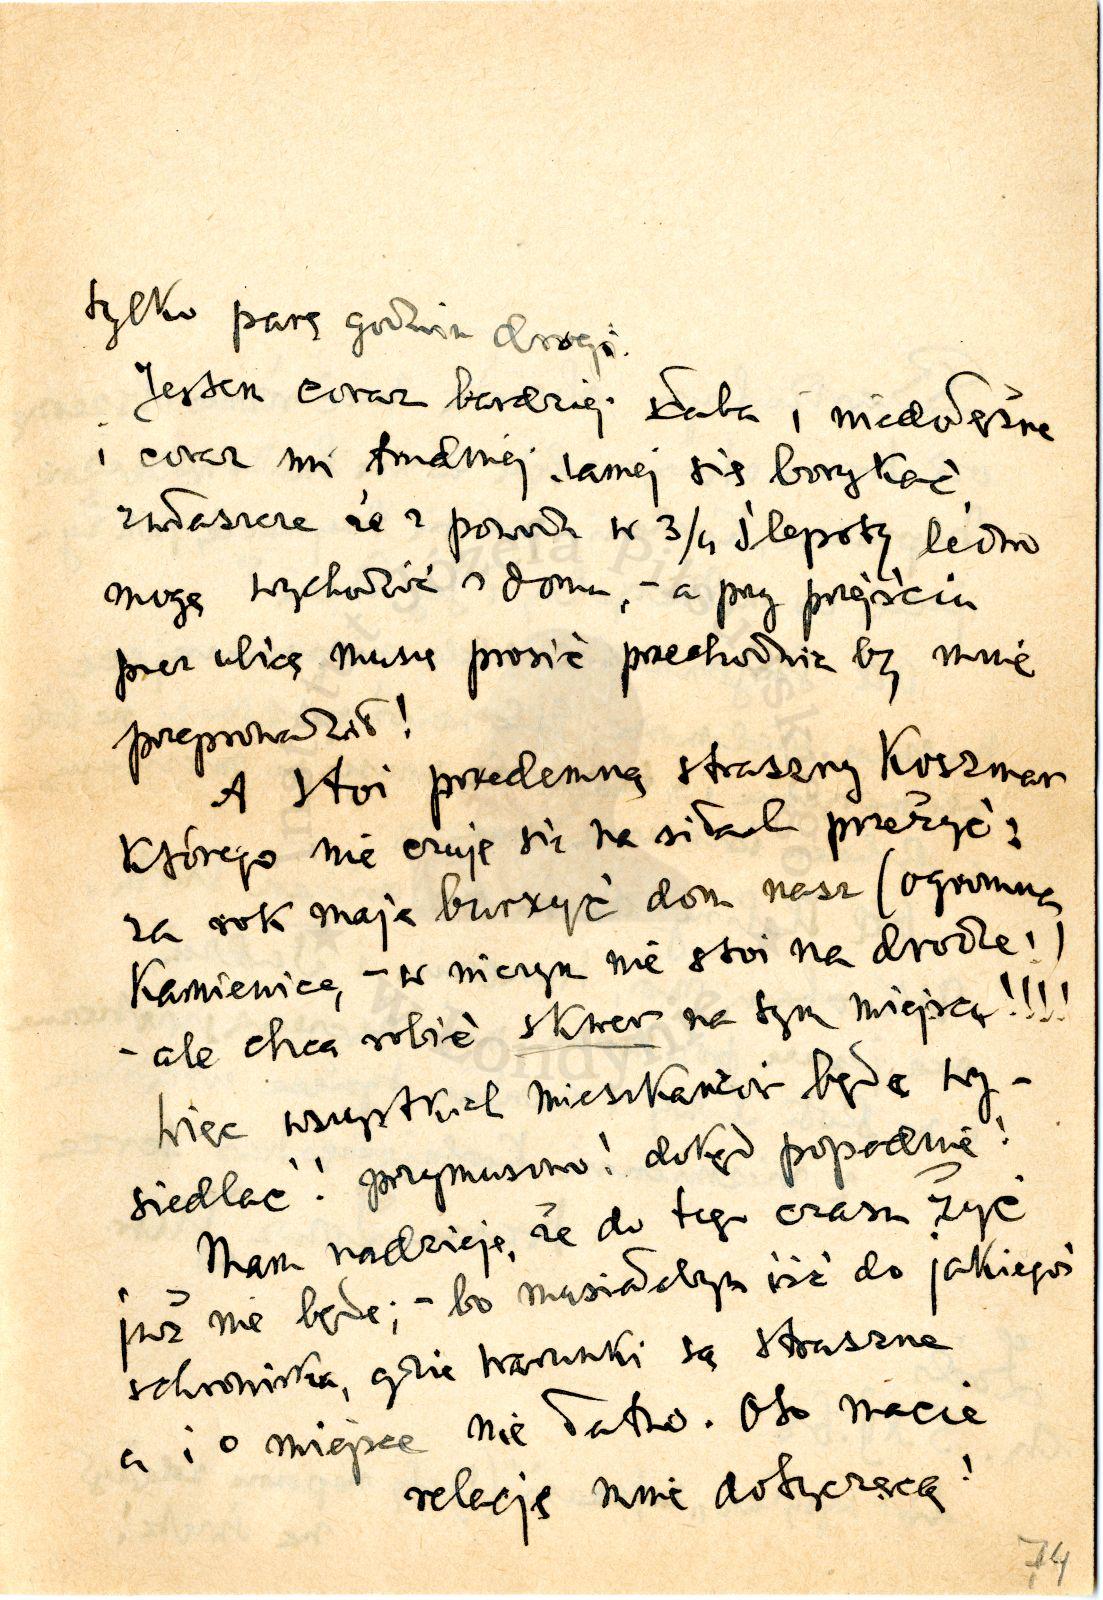 tylko parę godzin drogi.
Jestem coraz bardziej słaba i niedołężna
i coraz mi trudniej samej się borykać,
zwłaszcza że z powodu w 3/4 ślepoty ledwo
mogę wychodzić z domu, – a przy przejściu
przez ulicę muszę prosić przechodnia by mnie
przeprowadził!
A stoi przedemną straszny koszmar
którego nie czuję się na siłach przeżyć:
za rok mają burzyć dom nasz (ogromną
kamienicę, – w niczym nie stoi na drodze!)
– ale chcą robić skwer na tym miejscu!!!!
więc wszystkich mieszkańców będą wy-
siedlać! przymusowo! dokąd popadnie!
Mam nadzieję, że do tego czasu żyć
już nie będę; – bo musiałabym iść do jakiegoś
schroniska, gdzie warunki są straszne
a i o miejsce nie łatwo. Oto macie
relację mnie dotyczącą!
74